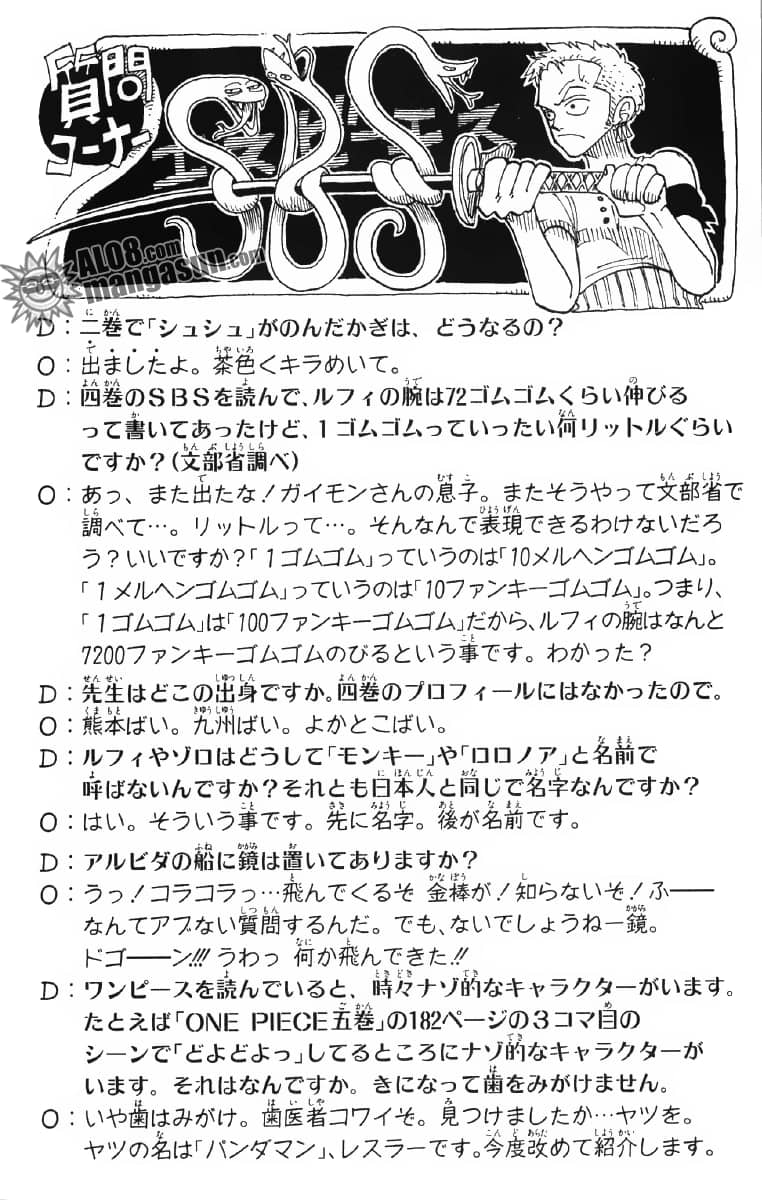 質問
コーナー
エスビーエス
SBS
AL08.com
mangasun.com
D：二巻で「シュシュ」がのんだかぎは、どうなるの？
O：出ましたよ。茶色くキラめいて。
D：四巻のＳＢＳを読んで、ルフィの腕は72ゴムゴムくらい伸びる
って書いてあったけど、１ゴムゴムっていったい何リットルぐらい
ですか？（文部省調べ）
O：あっ、また出たな！ガイモンさんの息子。またそうやって文部省で
調べて…。リットルって…。そんなんで表現できるわけないだろ
う？いいですか？「１ゴムゴム」っていうのは「10メルヘンゴムゴム」。
「１メルヘンゴムゴム」っていうのは「10ファンキーゴムゴム」。つまり、
「１ゴムゴム」は「100ファンキーゴムゴム」だから、ルフィの腕はなんと
7200ファンキーゴムゴムのびるという事です。わかった？
D：先生はどこの出身ですか。四巻のプロフィールにはなかったので。
O：熊本ばい。九州ばい。よかとこばい。
D：ルフィやゾロはどうして「モンキー」や「ロロノア」と名前で
呼ばないんですか？それとも日本人と同じで名字なんですか？
O：はい。そういう事です。先に名字。後が名前です。
D：アルビダの船に鏡は置いてありますか？
O：うっ！コラコラっ…飛んでくるぞ 金棒が！知らないぞ！ふ——
なんてアブない質問するんだ。でも、ないでしょうねー鏡。
ドゴ——ン!!! うわっ 何か飛んできた!!
D：ワンピースを読んでいると、時々ナゾ的なキャラクターがいます。
たとえば「ONE PIECE五巻」の182ページの３コマ目の
シーンで「どよどよっ」してるところにナゾ的なキャラクターが
います。それはなんですか。きになって歯をみがけません。
O：いや歯はみがけ。歯医者コワイぞ。見つけましたか…ヤツを。
ヤツの名は「パンダマン」、レスラーです。今度改めて紹介します。